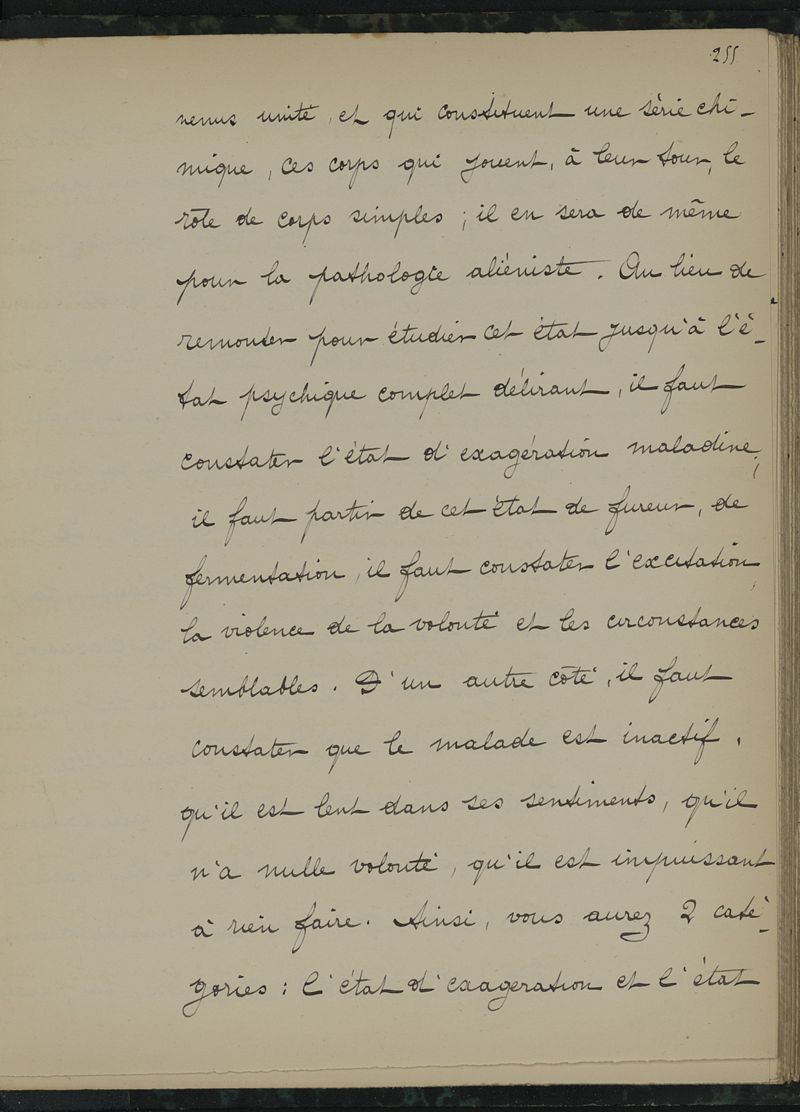 255
nenus unité, et qui constituent une série chi-
mique, ces corps qui jouent, à leur tour, le
rôle de corps simples ; il en sera de même
pour la pathologie aliéniste. Au lieu de
remonter pour étudier cet état jusqu'à l'é-
tat psychique complet délirant, il faut
constater l'état d'exagération maladive ;
il faut partir de cet état de fureur, de
fermentation, il faut constater l'excitation,
la violence de la volonté et les circonstances
semblables. D'un autre côté, il faut
constater que le malade est inactif,
qu'il est lent dans ses sentiments, qu'il
n'a nulle volonté, qu'il est impuissant
à rien faire. Ainsi, vous aurez 2 caté-
gories : l'état d'exagération et l'état